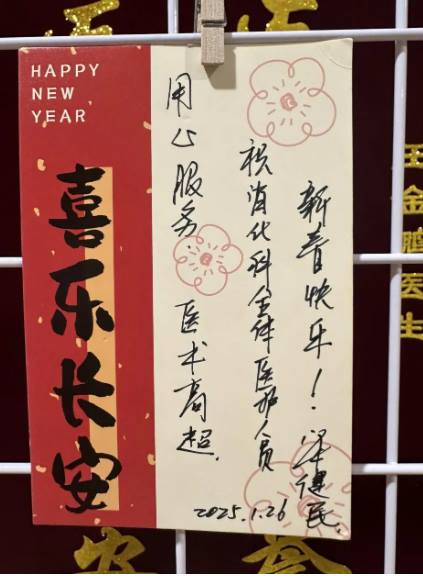 HAPPY
NEW
YEAR
喜乐长安
用心服务 医术高超.
祝消化科全体医护人员
新春快乐！
健民.
2025.1.26
王金鹏医生